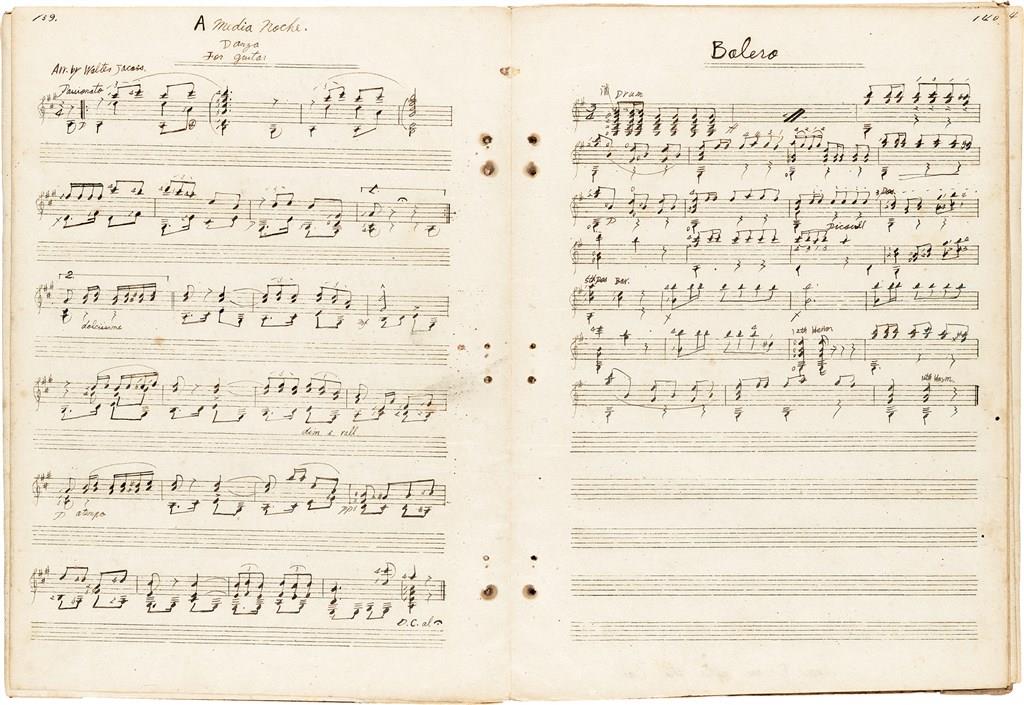 159.
A Media Noche.
Danza
For guitar
Arr. by Walter Jacobs.
Passionato
1.
2.
dolcissimo
dim e rall
a tempo
D.C. al
140
4
Bolero
Drum
3 Pos.
5th Pos Bar.
12th Harm
12th Harm.